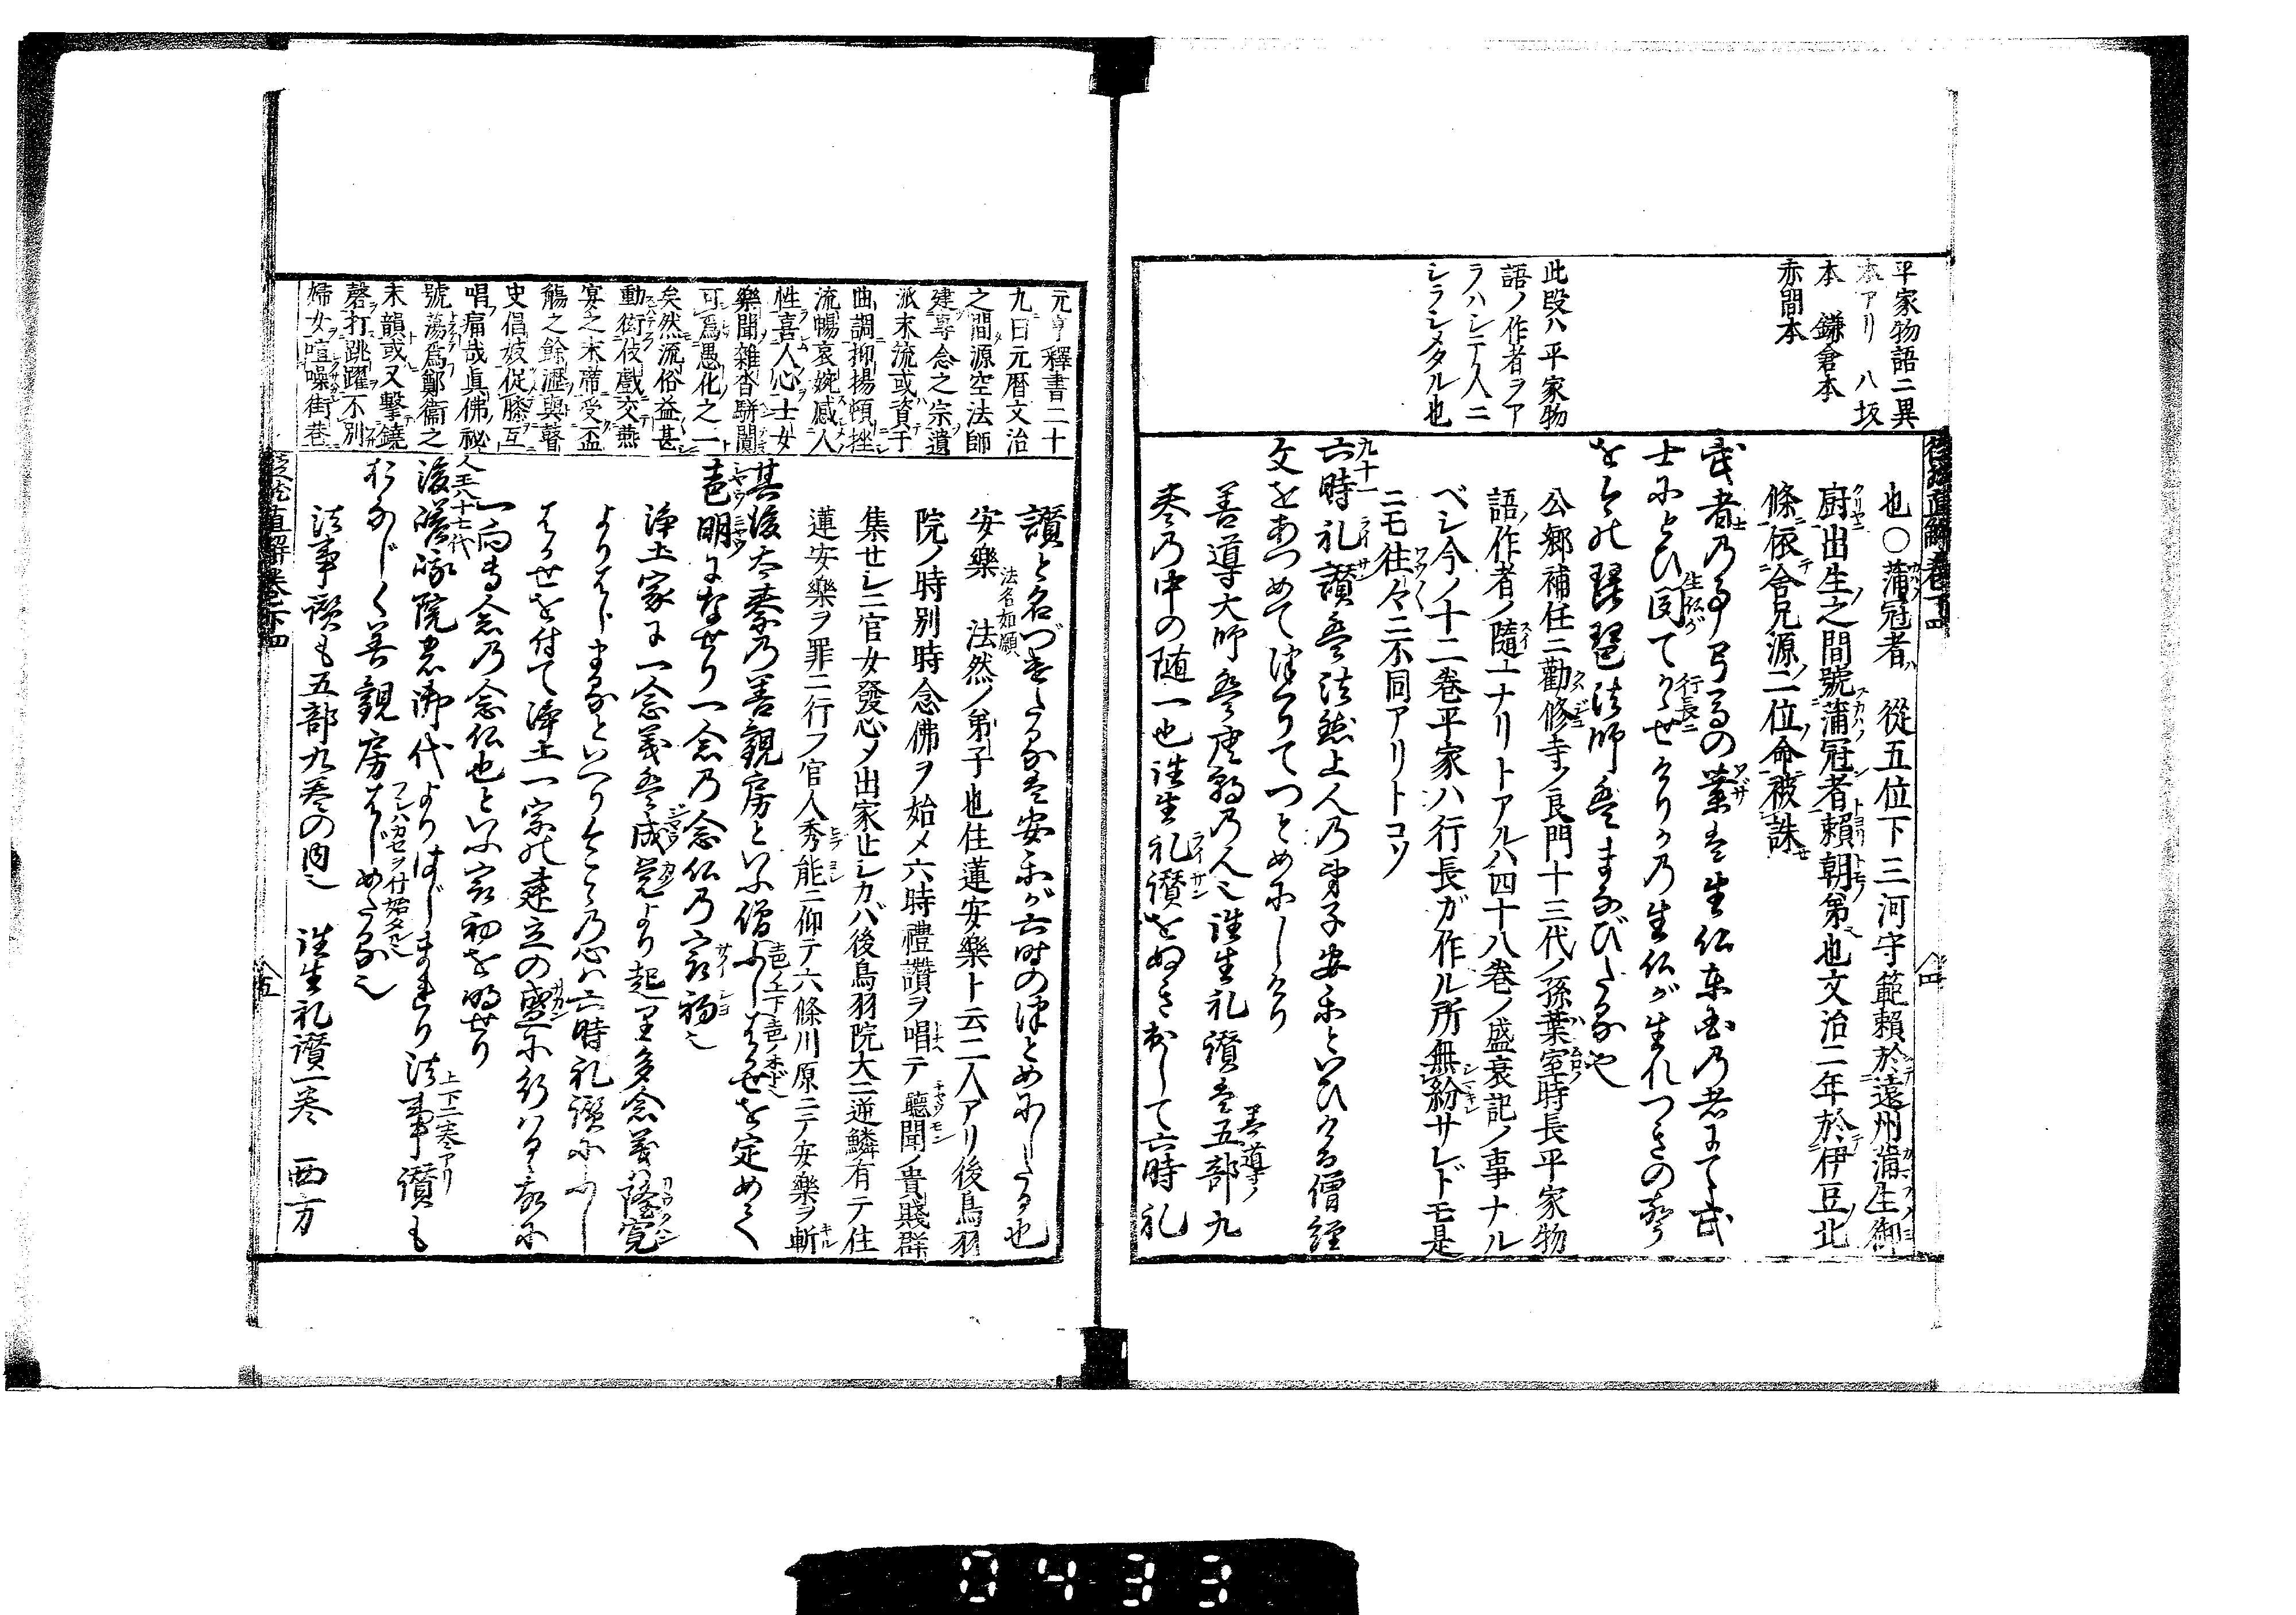 平家物語ニ異
本アリ　八坂
本　鎌倉本
赤間本
此段ハ平家物
語ノ作者ヲア
ラハシテ人ニ
シラシメタル也
也○蒲冠者ハ　從五位下三河守範賴於遠州蒲生御
厨出生之間號蒲冠者賴朝弟也文治二年於伊豆北
條依舍兄源二位命被誅
武者乃事弓馬の業は生仏東国乃者にて武
士にとひ聞てかゝせけりかの生仏が生れつきの聲
を今の琵琶法師はまなびたる也
公郷補任ニ勸修寺ノ良門十三代ノ孫葉室時長平家物
語ノ作者ノ隨一ナリトアルハ四十八巻ノ盛衰記ノ事ナル
ベシ今ノ十二巻平家ハ行長ガ作ル所無紛サレドモ是
ニモ往々ニ不同アリトコソ
九十一
六時礼讃は法然上人乃弟子安樂といひける僧經
文をあつめて作りてつとめにしけり
善導大師は唐朝乃人也往生礼讃は五部九
巻乃中の随一也往生礼讃をぬき出して六時礼
四
元亨釋書二十
九曰元暦文治
之間源空法師
建專念之宗遺
派末流或資于
曲調抑揚頓挫
流暢哀婉感人
性喜人心士女
樂聞雜沓駢闐
可爲愚化之一
矣然流俗益甚
動衒伎戲交燕
宴之末席受盃
觴之餘瀝與瞽
史倡妓促膝互
唱痛哉眞佛祕
號蕩爲鄭衞之
末韻或又撃鐃
磬打跳躍不別
婦女喧噪街巷
讃と名づけたるを安樂が六時のつとめにしたる也
安樂　法名如願　法然ノ弟子也住蓮安樂ト云二人アリ後鳥羽
院ノ時別時念佛ヲ始メ六時禮讚ヲ唱テ聽聞ノ貴賤群
集せシニ官女發心メ出家止シカバ後鳥羽院大ニ逆鱗有テ住
蓮安樂ヲ罪ニ行フ官人秀能ニ仰テ六條川原ニテ安樂ヲ斬
其後太秦乃善觀房といふ僧ふしはかせを定めて
声明になせり一念乃念仏乃最初也
浄土家に一念義は成覚より起里多念義ハ隆寛
よりはじまるといへりこゝの心ハ六時礼讃にふし
はかせを付て浄土一宗の建立の盛に行ハるゝ故に
一向専念乃念仏也といふ最初を明せり
人王八十七代
後嵯峨院の御代よりはじまれり法事讃も
フシハカセヲ付始タル也　上下二巻アリ
おなじく善觀房はじめたる也
法事讃も五部九巻の内也　往生礼讃一巻　西方
五
0433